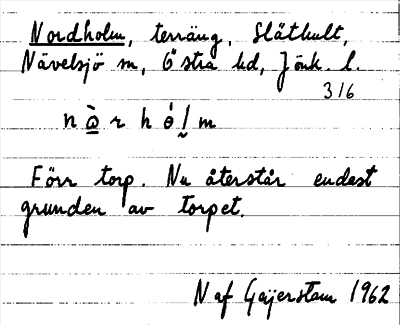 Nordholm, terräng, Släthult,
Nävelsjö sn, Östra hd, Jönk. l.
316
n ὼ r h ó l m
Förr torp. Nu återstår endast
grunden av torpet.
N af Geijerstam 1962